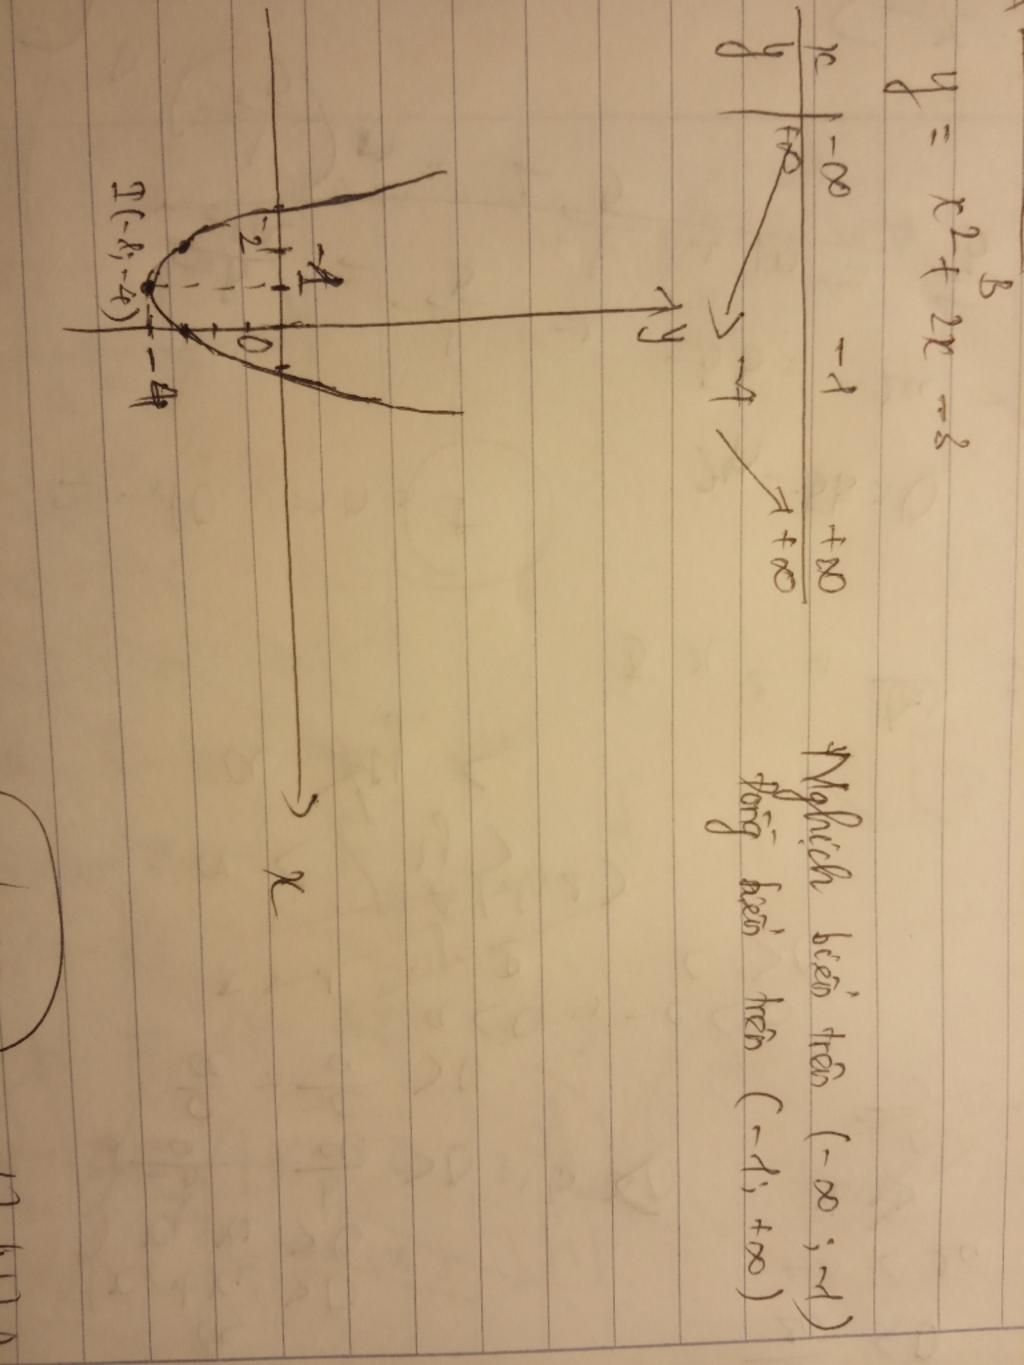 y = x² + 2x - 3
x | -∞ -1 +∞
y | +∞ -4 +∞
Nghịch biến trên (-∞ ; -1)
Đồng biến trên (-1; +∞)
y
-1
-2
0
x
-4
I(-1; -4)